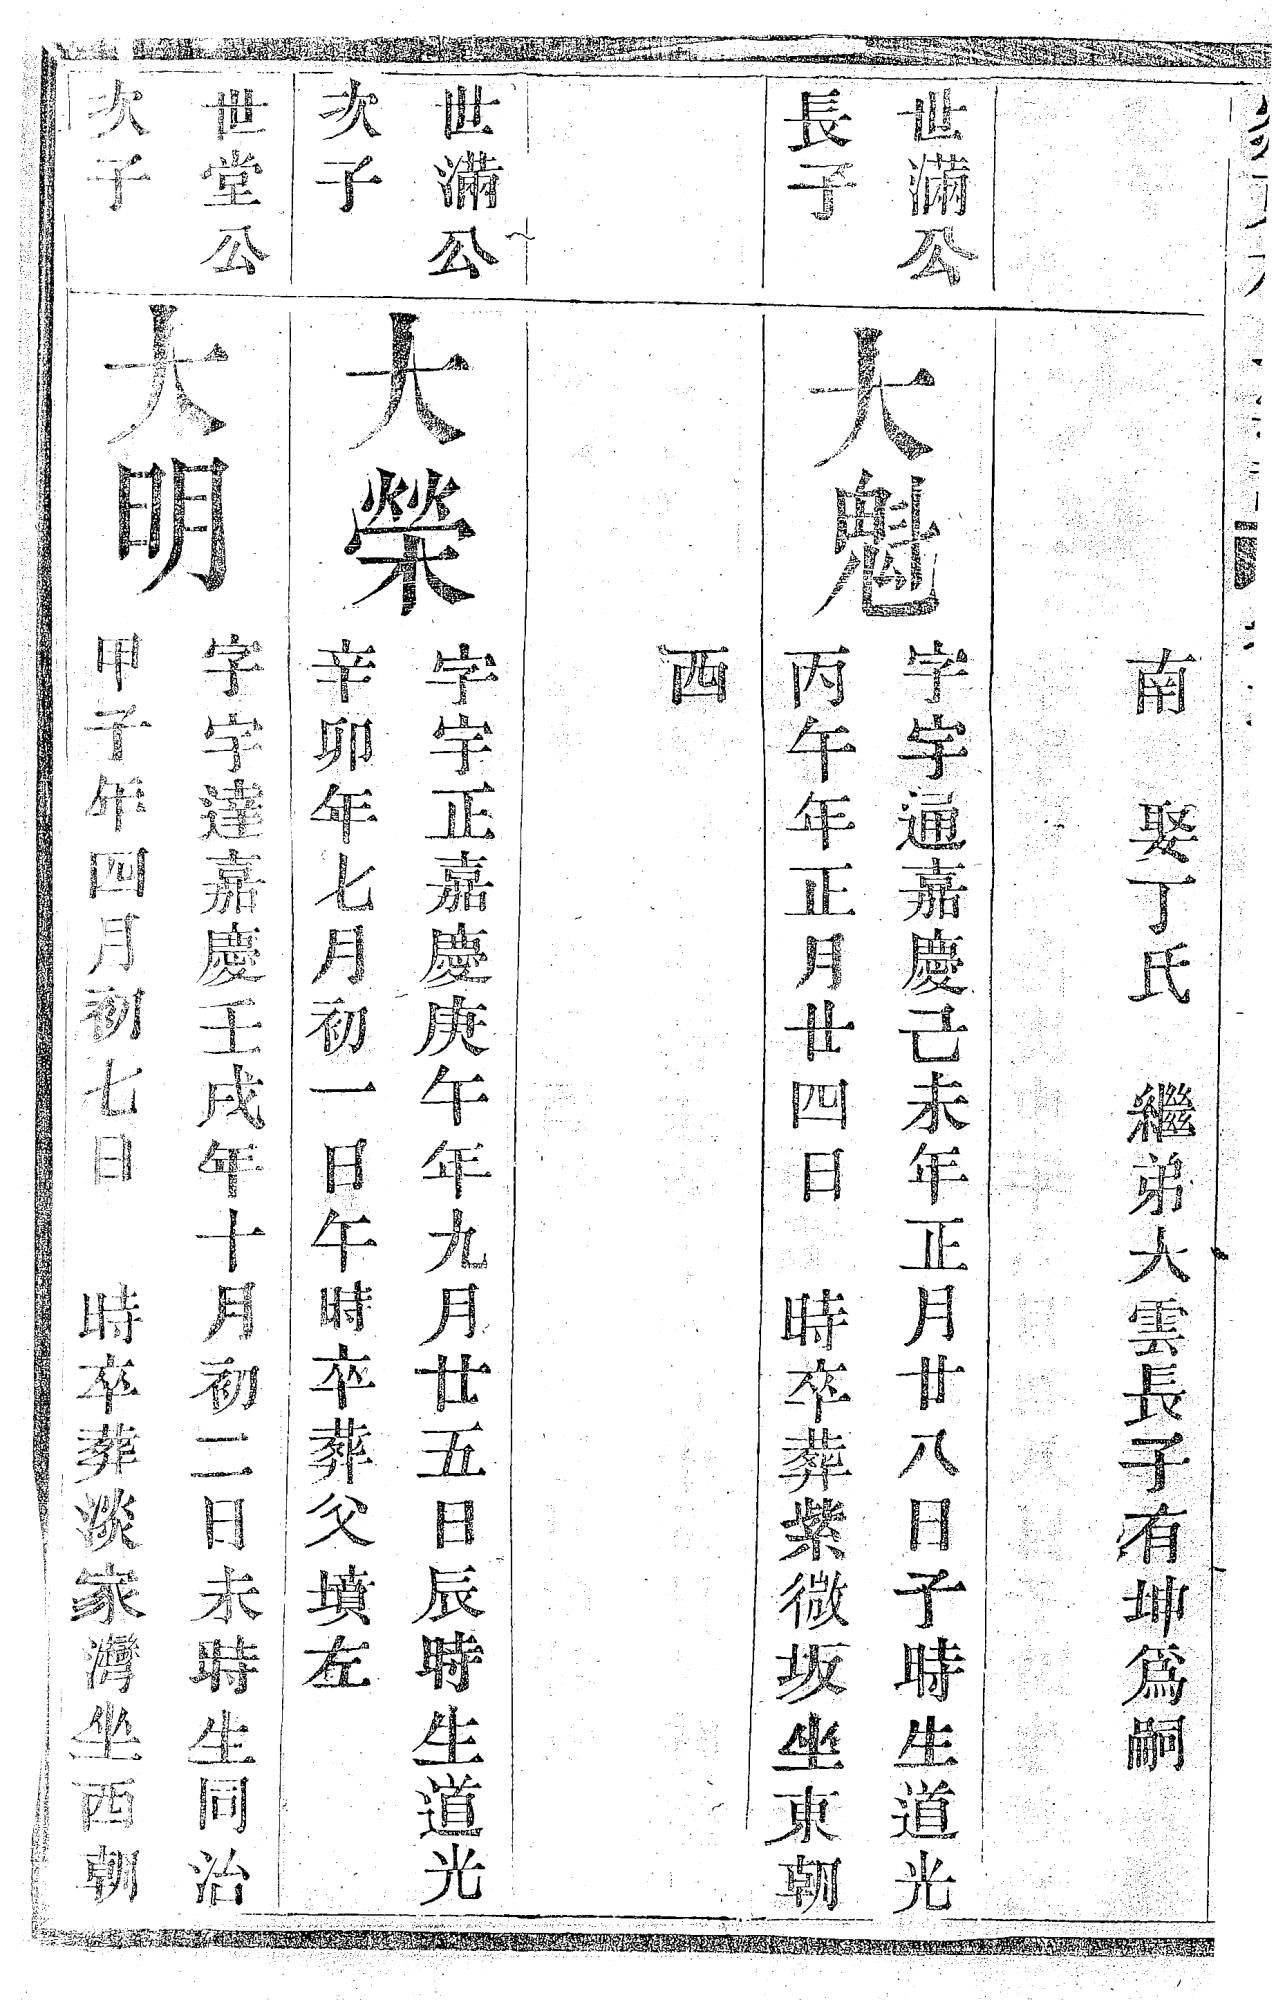 南　娶丁氏　繼弟大雲長子有坤爲嗣
世滿公
長子
大魁
字宇通嘉慶己未年正月廿八日子時生道光
丙午年正月廿四日　時卒葬紫微坂坐東朝
西
世滿公
次子
大榮
字宇正嘉慶庚午年九月廿五日辰時生道光
辛卯年七月初一日午時卒葬父墳左
世堂公
次子
大明
字宇達嘉慶壬戌年十月初二日未時生同治
甲子年四月初七日　時卒葬淡家灣坐西朝